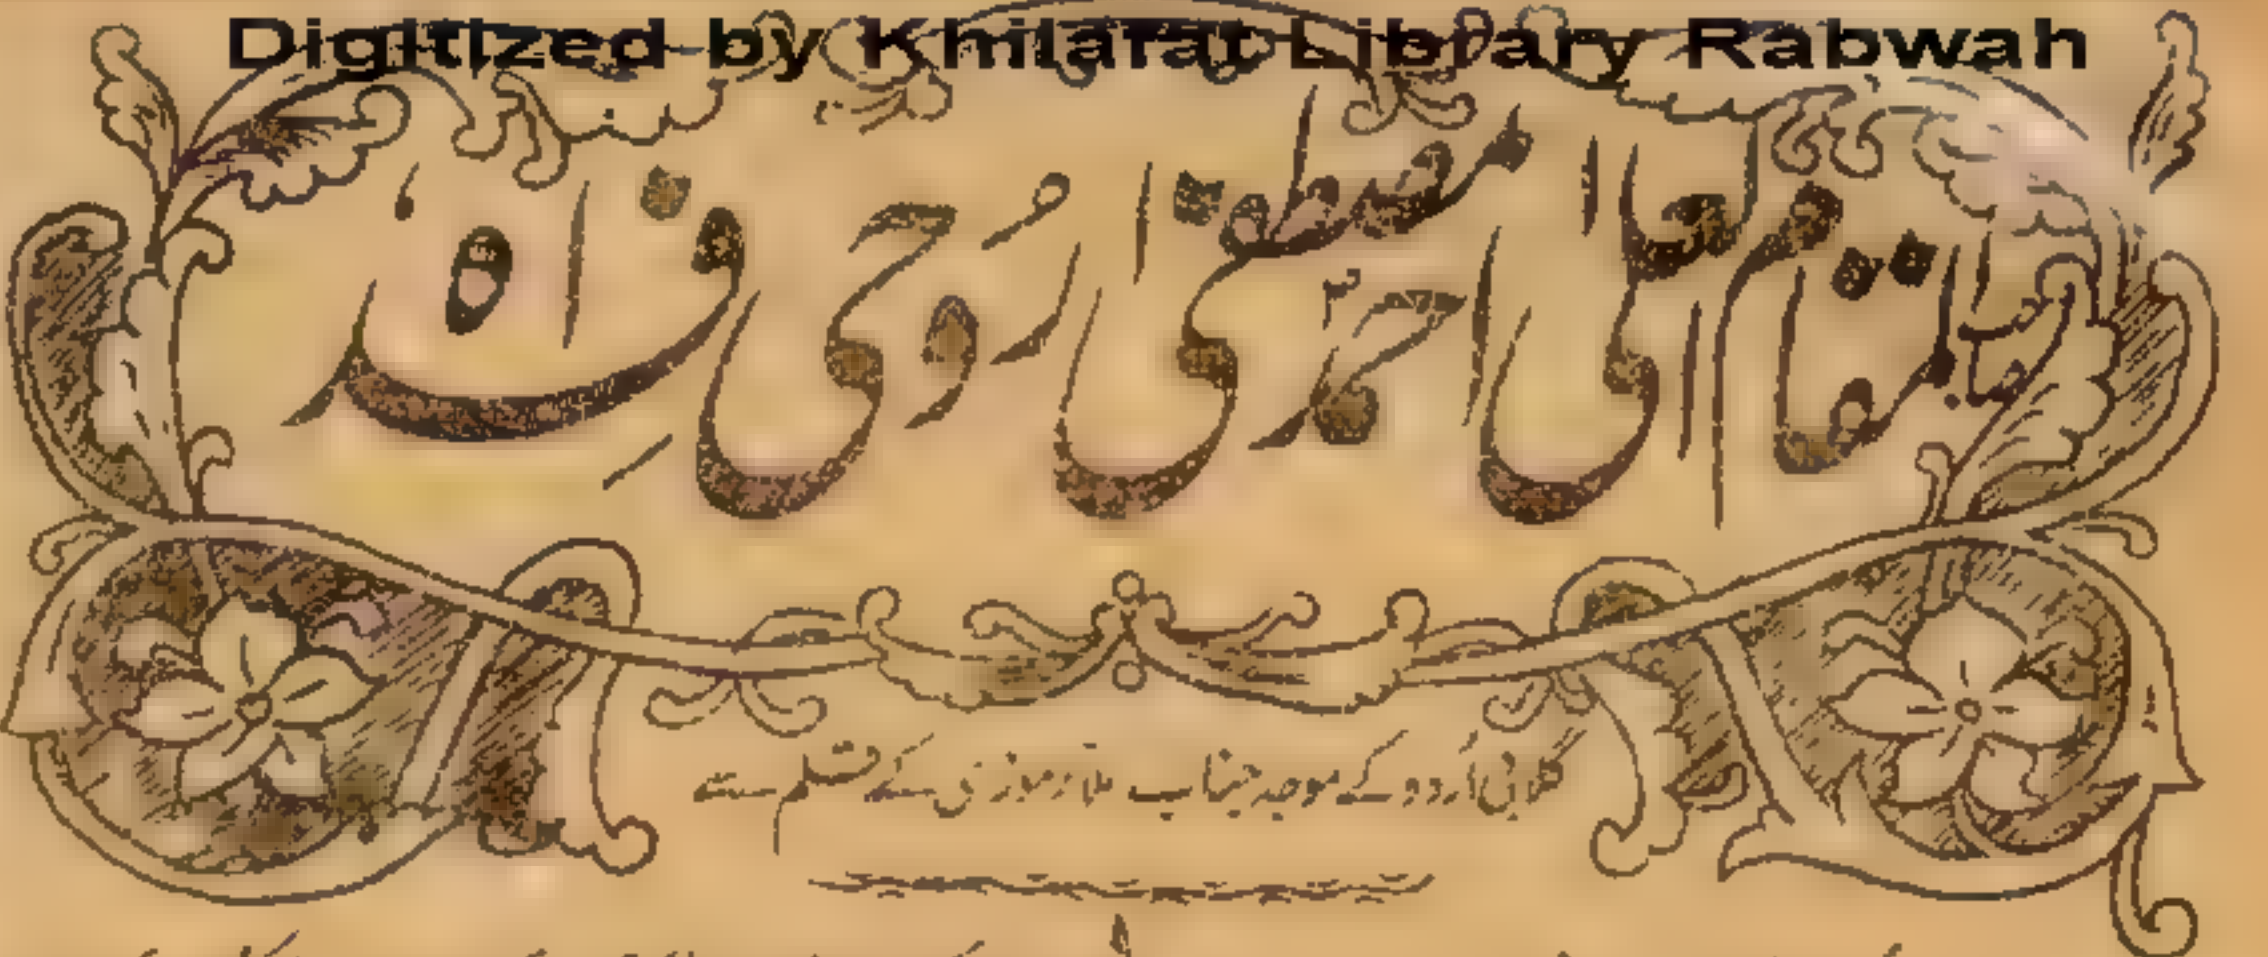 Digitized by Khilafat Library Rabwah
صاحب مقام اعلیٰ احمد مصطفیٰ رُوحی فداہ
گلابی اُردو کے موجد جناب ملا رموزی کے قلم سے